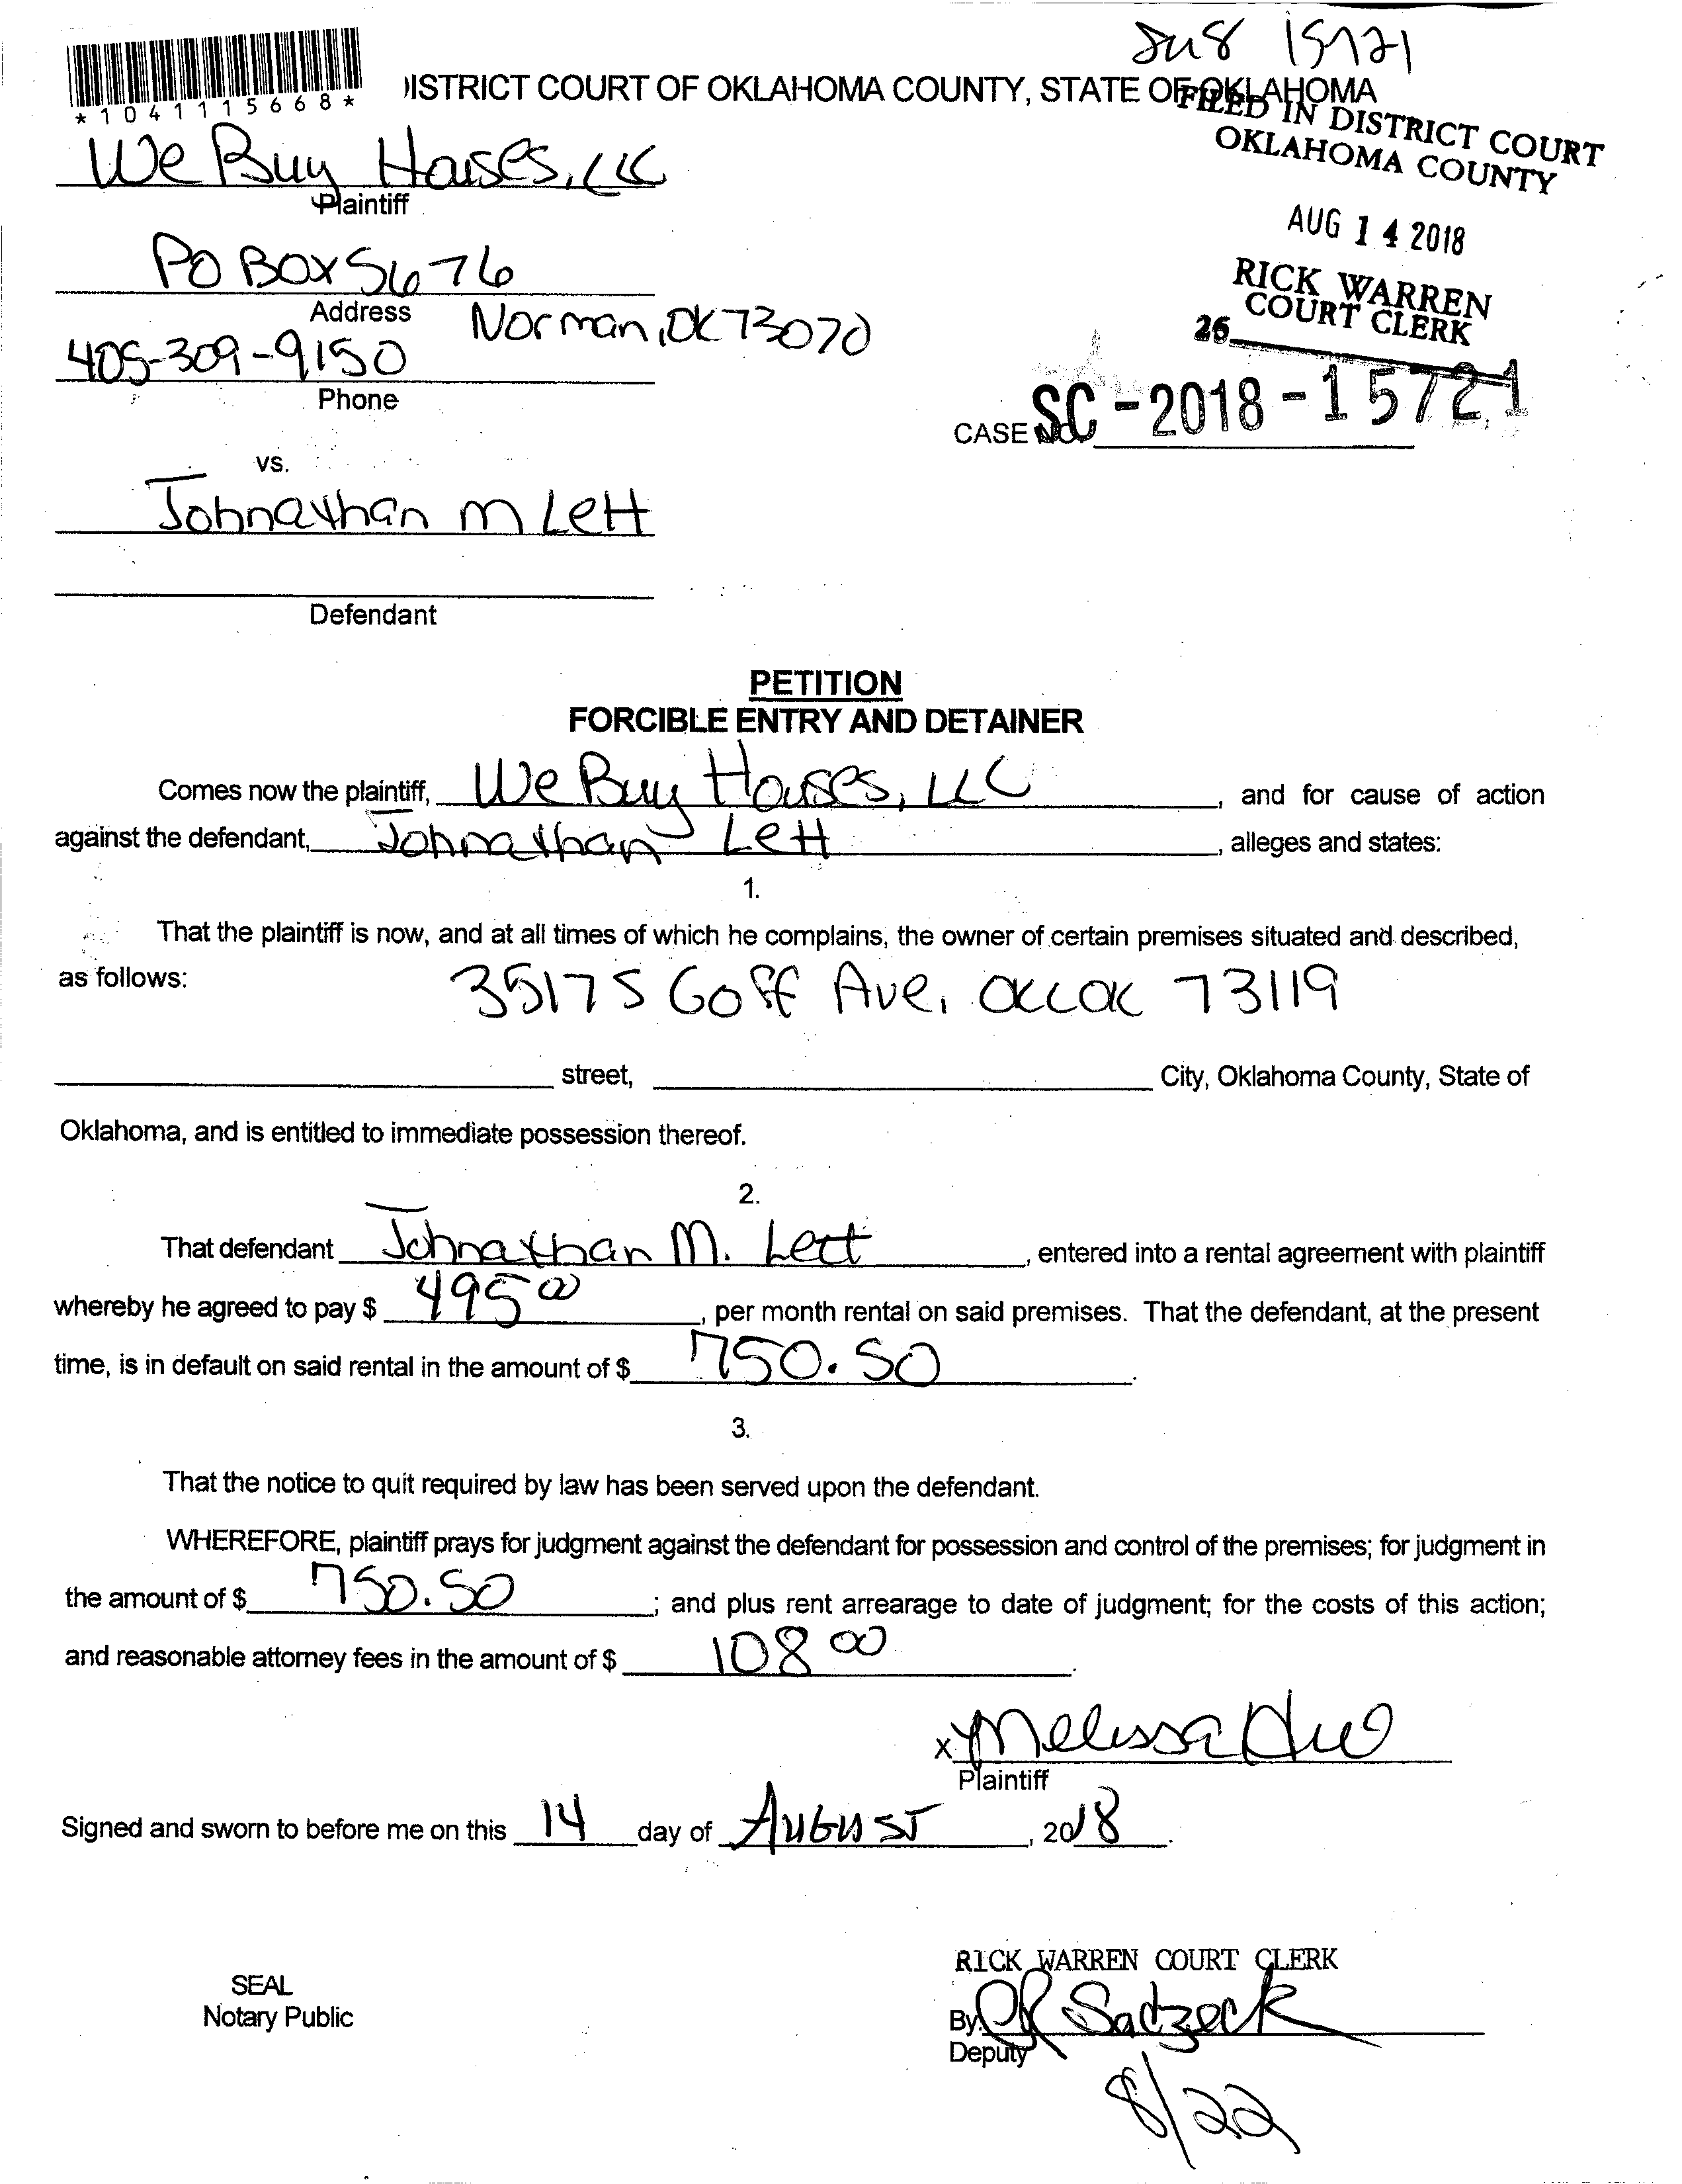 15721
*1041115668*
ISTRICT COURT OF OKLAHOMA COUNTY, STATE OF OKLAHOMA
FILED IN DISTRICT COURT
OKLAHOMA COUNTY
AUG 14 2018
RICK WARREN
COURT CLERK
26
We Buy Houses, LLC
Plaintiff
PO BOX 5676
Address
Norman, OK 73070
405-309-9150
Phone
CASE NO. SC-2018-15721
vs.
Johnathan M Lett
Defendant
PETITION
FORCIBLE ENTRY AND DETAINER
Comes now the plaintiff, We Buy Houses, LLC, and for cause of action
against the defendant, Johnathan Lett, alleges and states:
1.
That the plaintiff is now, and at all times of which he complains, the owner of certain premises situated and described,
as follows: 3517 S Goff Ave, OKC OK 73119
street, City, Oklahoma County, State of
Oklahoma, and is entitled to immediate possession thereof.
2.
That defendant Johnathan M. Lett, entered into a rental agreement with plaintiff
whereby he agreed to pay $ 495 00, per month rental on said premises. That the defendant, at the present
time, is in default on said rental in the amount of $ 750.50.
3.
That the notice to quit required by law has been served upon the defendant.
WHEREFORE, plaintiff prays for judgment against the defendant for possession and control of the premises; for judgment in
the amount of $ 750.50; and plus rent arrearage to date of judgment; for the costs of this action;
and reasonable attorney fees in the amount of $ 108 00.
x Melissa
Plaintiff
Signed and sworn to before me on this 14 day of August, 2018.
RICK WARREN COURT CLERK
SEAL
Notary Public
By
Deputy
8/22